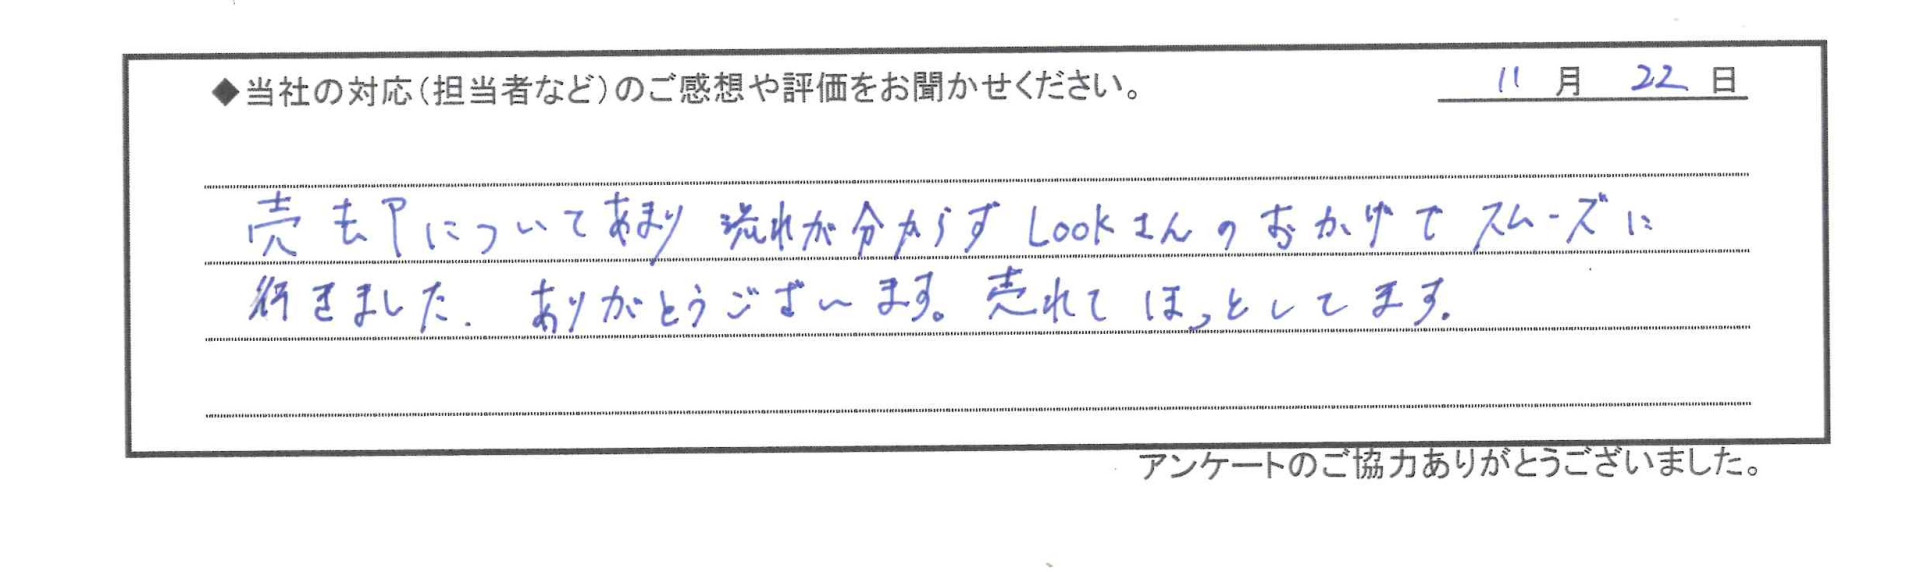 ◆当社の対応(担当者など)のご感想や評価をお聞かせください。 11月22日
売却についてあまり流れが分からずLookさんのおかげでスムーズに
行きました. ありがとうございます。売れてほっとしてます.
アンケートのご協力ありがとうございました。